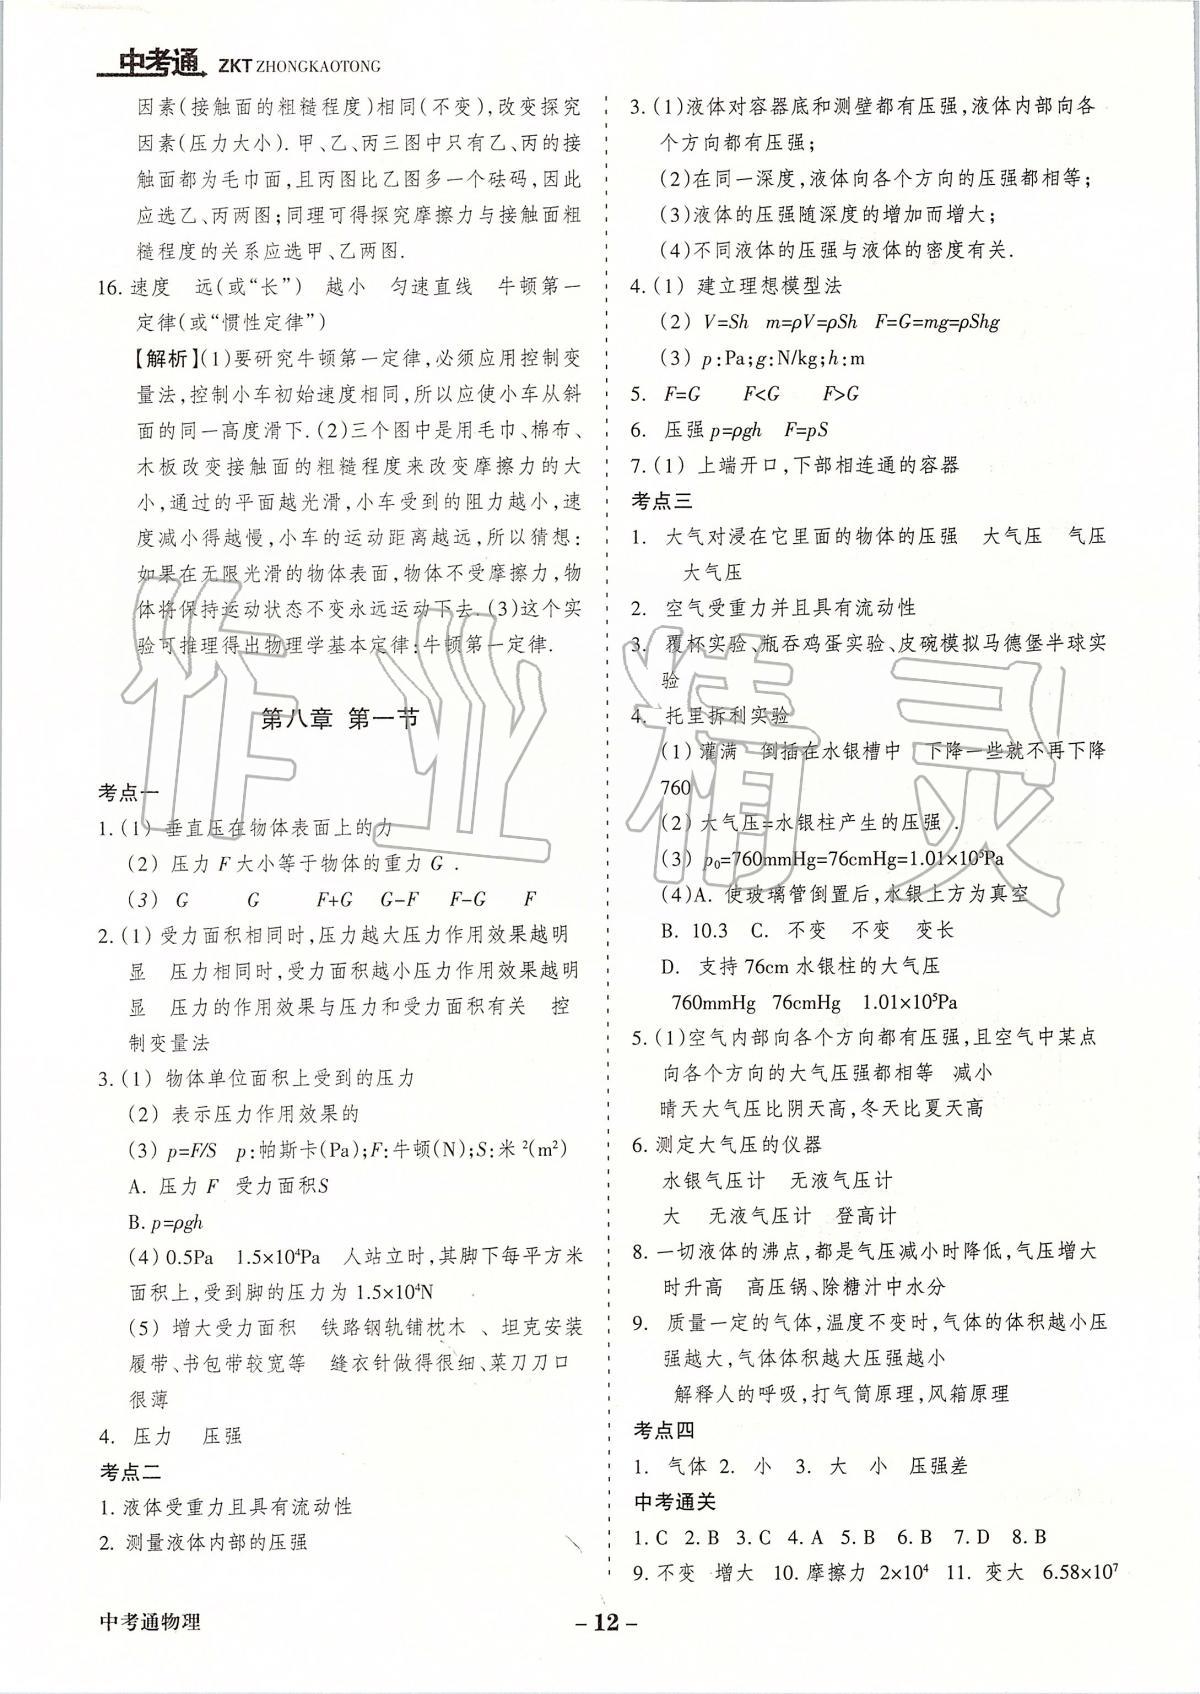 中考通 ZKT ZHONGKAOTONG
因素(接触面的粗糙程度)相同(不变),改变探究
因素(压力大小).甲、乙、丙三图中只有乙、丙的接
触面都为毛巾面,且丙图比乙图多一个砝码,因此
应选乙、丙两图;同理可得探究摩擦力与接触面粗
糙程度的关系应选甲、乙两图.
16. 速度 远(或“长”) 越小 匀速直线 牛顿第一
定律(或“惯性定律”)
【解析】(1)要研究牛顿第一定律,必须应用控制变
量法,控制小车初始速度相同,所以应使小车从斜
面的同一高度滑下.(2)三个图中是用毛巾、棉布、
木板改变接触面的粗糙程度来改变摩擦力的大
小,通过的平面越光滑,小车受到的阻力越小,速
度减小得越慢,小车的运动距离越远,所以猜想:
如果在无限光滑的物体表面,物体不受摩擦力,物
体将保持运动状态不变永远运动下去.(3)这个实
验可推理得出物理学基本定律:牛顿第一定律.
第八章 第一节
考点一
1. (1) 垂直压在物体表面上的力
(2) 压力 F 大小等于物体的重力 G .
(3) G G F+G G-F F-G F
2. (1) 受力面积相同时,压力越大压力作用效果越明
显 压力相同时,受力面积越小压力作用效果越明
显 压力的作用效果与压力和受力面积有关 控
制变量法
3. (1) 物体单位面积上受到的压力
(2) 表示压力作用效果的
(3) p=F/S p:帕斯卡(Pa);F:牛顿(N);S:米²(m²)
A. 压力 F 受力面积S
B. p=ρgh
(4) 0.5Pa 1.5×10⁴Pa 人站立时,其脚下每平方米
面积上,受到脚的压力为 1.5×10⁴N
(5) 增大受力面积 铁路钢轨铺枕木 、坦克安装
履带、书包带较宽等 缝衣针做得很细、菜刀刀口
很薄
4. 压力 压强
考点二
1. 液体受重力且具有流动性
2. 测量液体内部的压强
3. (1)液体对容器底和测壁都有压强,液体内部向各
个方向都有压强;
(2)在同一深度,液体向各个方向的压强都相等;
(3)液体的压强随深度的增加而增大;
(4)不同液体的压强与液体的密度有关.
4. (1) 建立理想模型法
(2) V=Sh m=ρV=ρSh F=G=mg=ρShg
(3) p:Pa;g:N/kg;h:m
5. F=G F<G F>G
6. 压强p=ρgh F=pS
7. (1) 上端开口,下部相连通的容器
考点三
1. 大气对浸在它里面的物体的压强 大气压 气压
大气压
2. 空气受重力并且具有流动性
3. 覆杯实验、瓶吞鸡蛋实验、皮碗模拟马德堡半球实
验
4. 托里拆利实验
(1) 灌满 倒插在水银槽中 下降一些就不再下降
760
(2) 大气压=水银柱产生的压强 .
(3) p₀=760mmHg=76cmHg=1.01×10⁵Pa
(4)A. 使玻璃管倒置后,水银上方为真空
B. 10.3 C. 不变 不变 变长
D. 支持76cm水银柱的大气压
760mmHg 76cmHg 1.01×10⁵Pa
5. (1)空气内部向各个方向都有压强,且空气中某点
向各个方向的大气压强都相等 减小
晴天大气压比阴天高,冬天比夏天高
6. 测定大气压的仪器
水银气压计 无液气压计
大 无液气压计 登高计
8. 一切液体的沸点,都是气压减小时降低,气压增大
时升高 高压锅、除糖汁中水分
9. 质量一定的气体,温度不变时,气体的体积越小压
强越大,气体体积越大压强越小
解释人的呼吸,打气筒原理,风箱原理
考点四
1. 气体 2. 小 3. 大 小 压强差
中考通关
1. C 2. B 3. C 4. A 5. B 6. B 7. D 8. B
9. 不变 增大 10. 摩擦力 2×10⁴ 11. 变大 6.58×10⁷
作业精灵
中考通物理
- 12 -